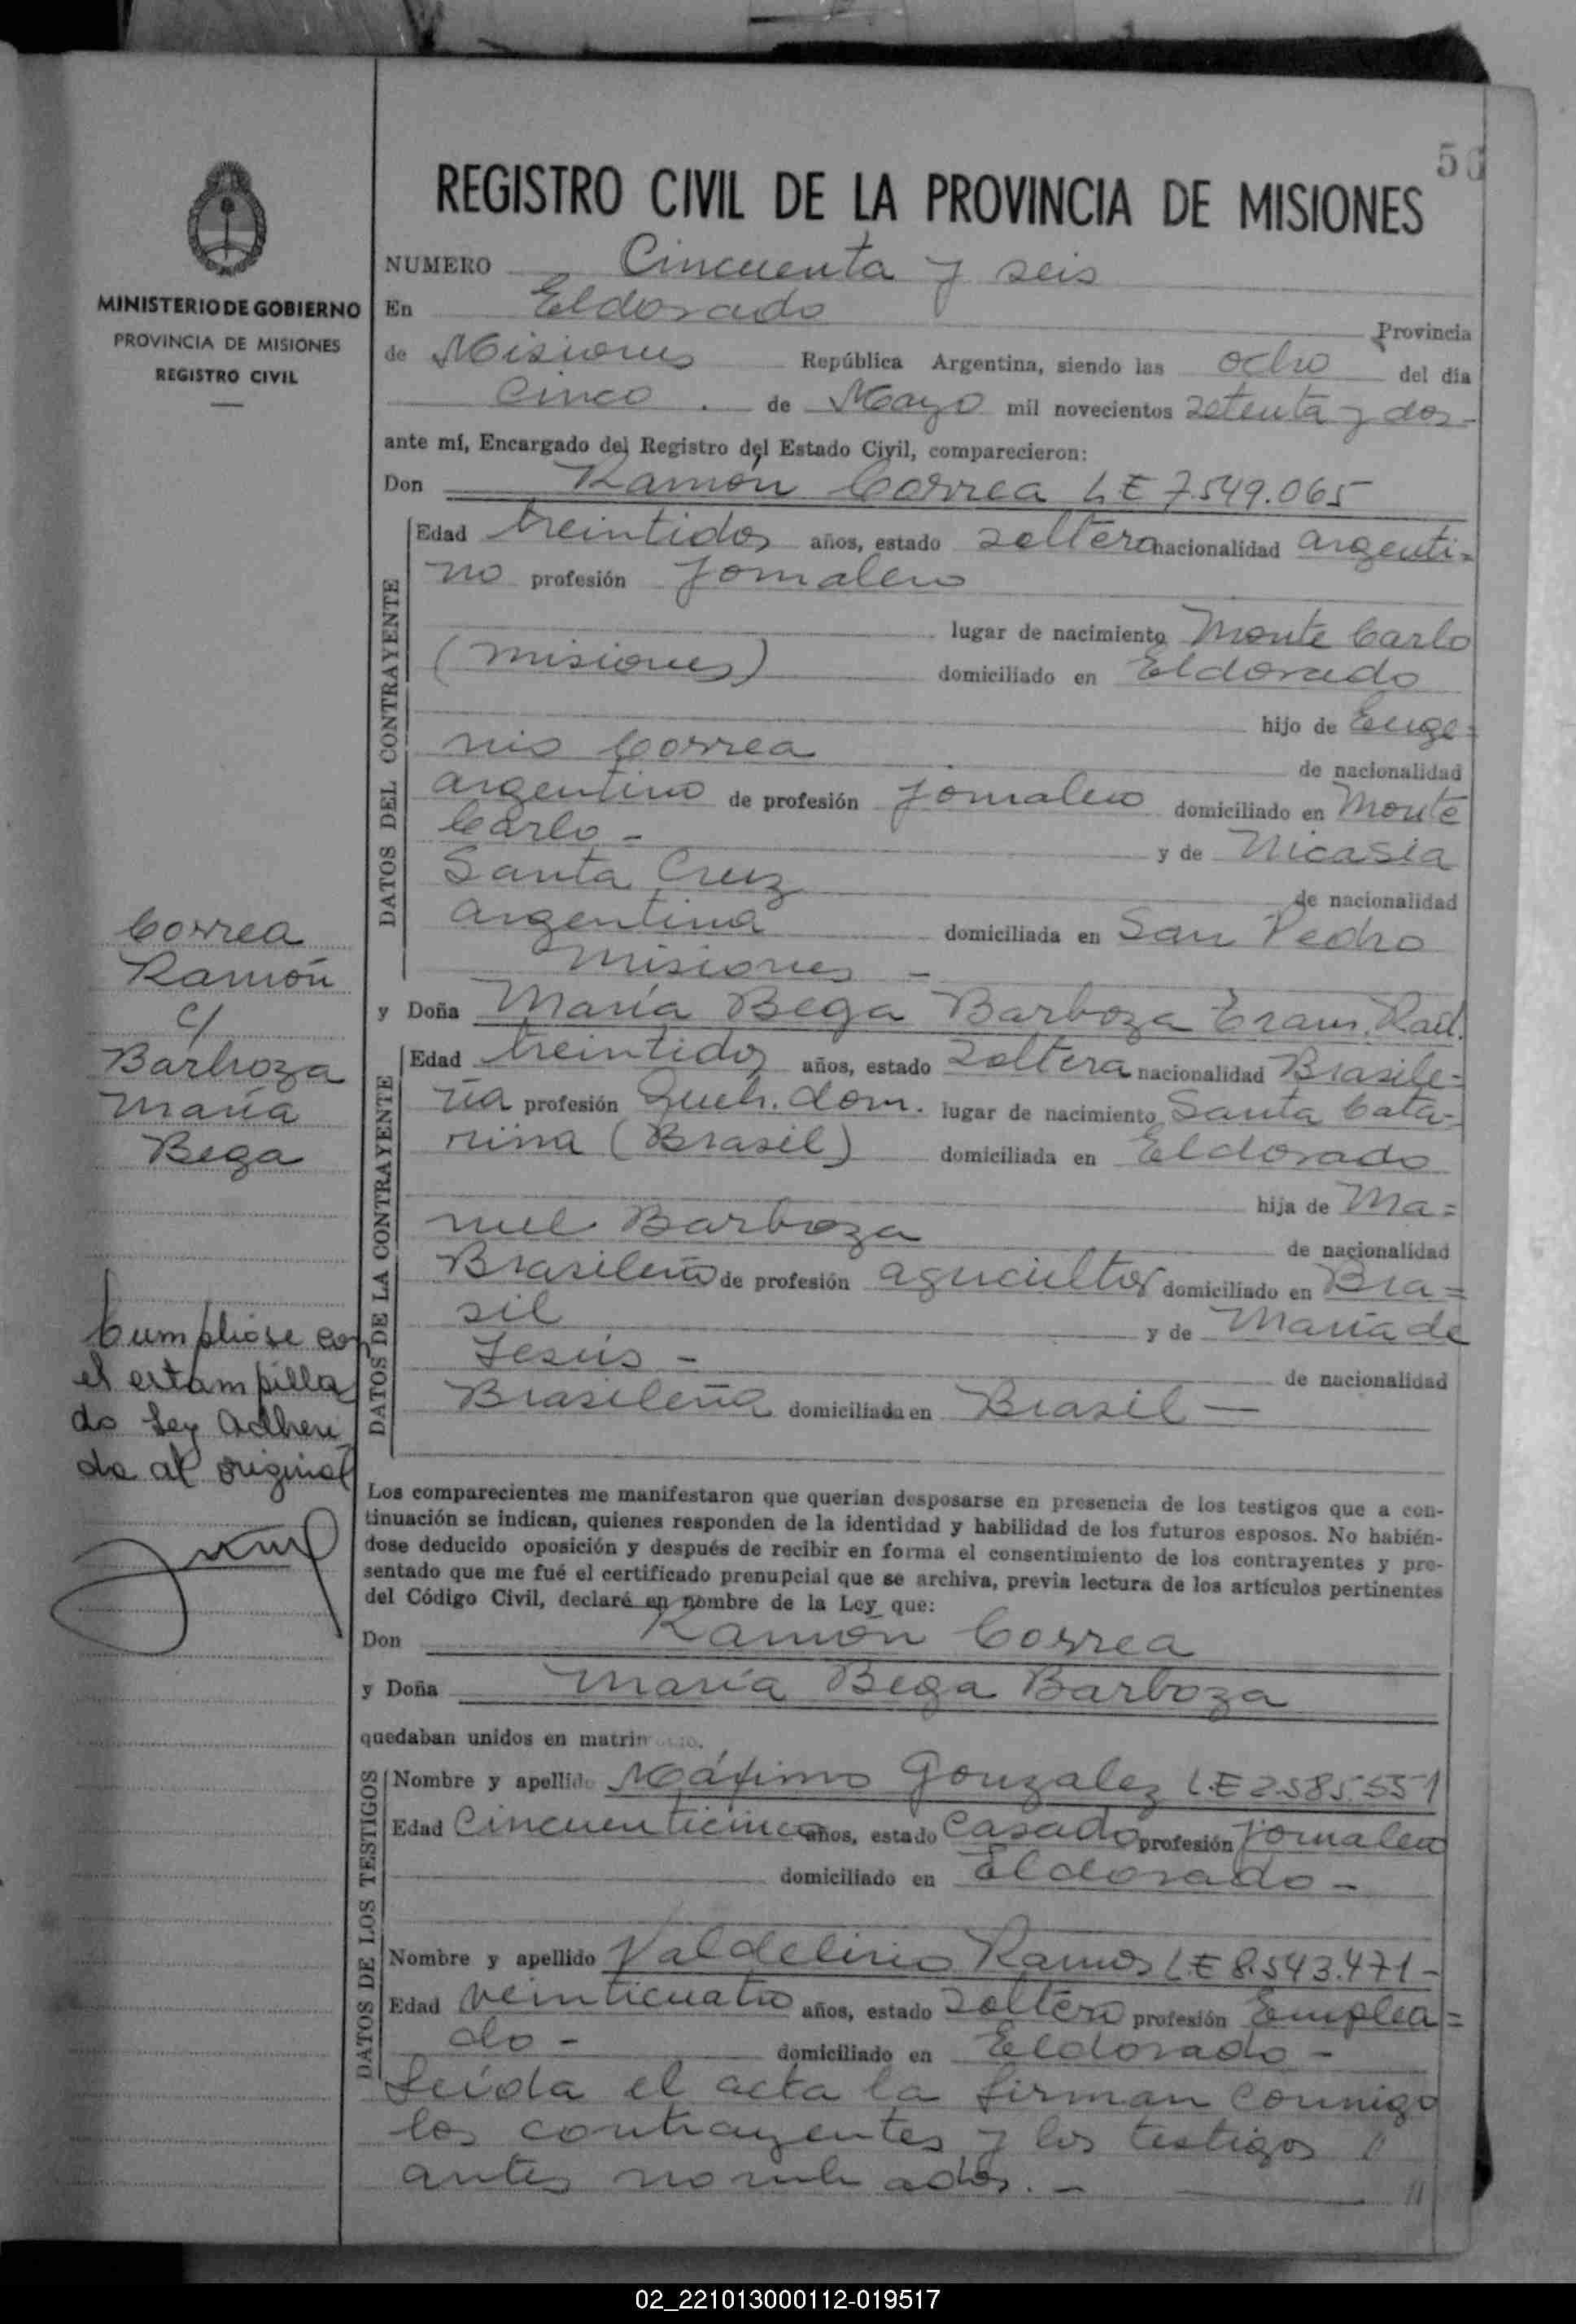 56
REGISTRO CIVIL DE LA PROVINCIA DE MISIONES
MINISTERIO DE GOBIERNO
PROVINCIA DE MISIONES
REGISTRO CIVIL
NUMERO Cincuenta y seis
En Eldorado Provincia
de Misiones República Argentina, siendo las ocho del día
cinco de Mayo mil novecientos setenta y dos-
ante mí, Encargado del Registro del Estado Civil, comparecieron:
Don Ramón Correa LE 7.549.065
DATOS DEL CONTRAYENTE
Edad treintidos años, estado soltero nacionalidad argenti=
no profesión jornalero
lugar de nacimiento Monte Carlo
(Misiones) domiciliado en Eldorado
hijo de Euge=
nio Correa de nacionalidad
argentino de profesión jornalero domiciliado en Monte
Carlo - y de Nicasia
Santa Cruz de nacionalidad
argentina domiciliada en San Pedro
Misiones -
y Doña María Bega Barboza Eram. Rad.
DATOS DE LA CONTRAYENTE
Edad treintidos años, estado soltera nacionalidad Brasile-
ña profesión Queh. dom. lugar de nacimiento Santa Cata-
rina (Brasil) domiciliada en Eldorado
hija de Ma=
nuel Barboza de nacionalidad
Brasileño de profesión agricultor domiciliado en Bra=
sil y de María de
Jesús - de nacionalidad
Brasileña domiciliada en Brasil —
Los comparecientes me manifestaron que querían desposarse en presencia de los testigos que a con-
tinuación se indican, quienes responden de la identidad y habilidad de los futuros esposos. No habién-
dose deducido oposición y después de recibir en forma el consentimiento de los contrayentes y pre-
sentado que me fué el certificado prenupcial que se archiva, previa lectura de los artículos pertinentes
del Código Civil, declaré en nombre de la Ley que:
Don Ramón Correa
y Doña María Bega Barboza
quedaban unidos en matrimonio.
DATOS DE LOS TESTIGOS
Nombre y apellido Máximo Gonzalez L.E 2.585.551
Edad Cincuenticinco años, estado Casado profesión jornalero
domiciliado en Eldorado -
Nombre y apellido Valdelirio Ramos LE 8.543.471-
Edad veinticuatro años, estado soltero profesión Emplea=
do - domiciliado en Eldorado -
Leída el acta la firman conmigo
los contrayentes y los testigos //
antes nombrados. - //
Correa
Ramón
c/
Barboza
María
Bega
Cumpliose con
el estampilla
do Ley Adheri
do al original
02_221013000112-019517